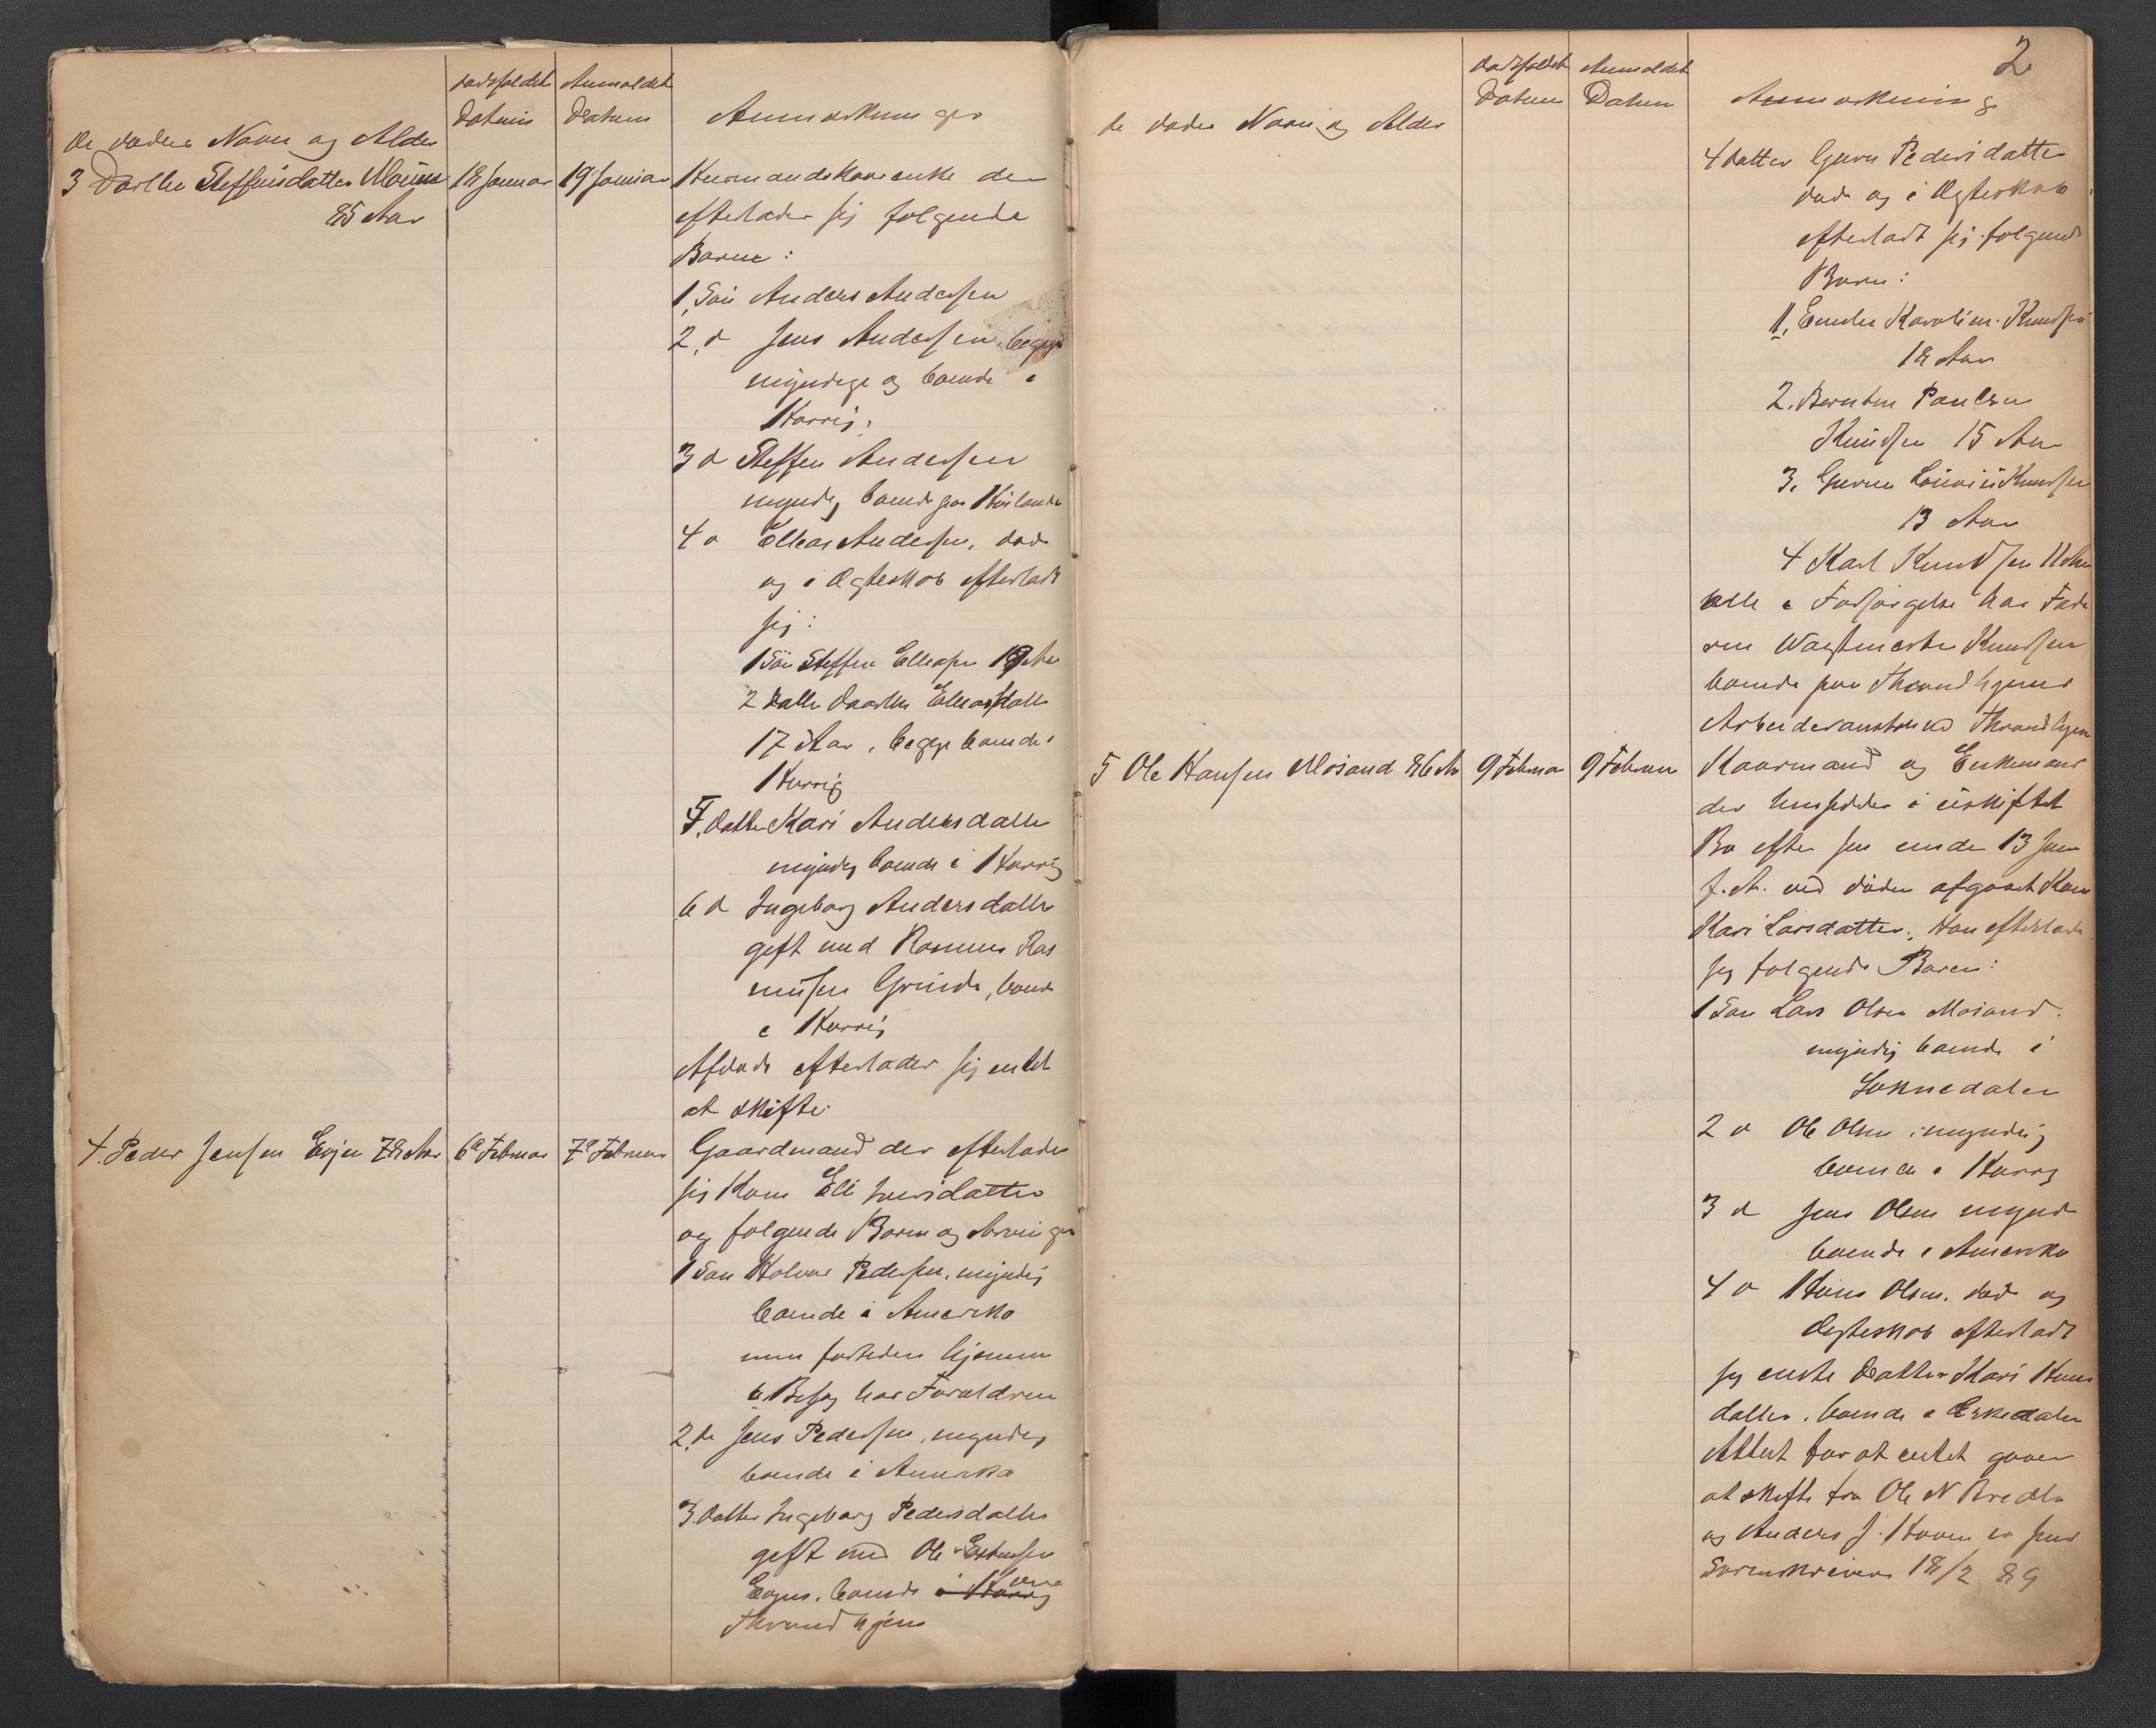 De dødes Navn og Alder
Dødsfaldets Datum
Anmeldelses Datum
Anmærkninger
3 Dorthe Steffensdatter Moum
85 Aar
18 Januar
19 Januar
Huusmandskaarenke der
efterlader sig følgende
Børn:
1, Søn Anders Andersen
2, d Jens Andersen, begge
myndige og boende i
Horrig.
3 d Steffen Andersen
myndig boende paa
4 d Ellias Andersen, død
og i Ægteskab efterladt
sig:
1 Søn Steffen Elliasen 19 Aar
2 Datter Dorthe Elliasdatter
17 Aar, begge boende i
Horrig
5, Datter Kari Andersdatter
myndig boende i Horrig
6 d Ingeborg Andersdatter
gift med Rasmus Ras
musen Grinde, boende
i Horrig
Afdøde efterlader sig intet
at skifte.
4. Peder Jensen Evjen 78 Aar
6te Februar
7de Februar
Gaardmand der efterlader
sig Kone Eli Iversdatter
og følgende Børn og Arvinger
1 Søn Halvor Pedersen, myndig
boende i Amerika
men fortiden hjemme
i Besøg hos Forældrene
2, d Jens Pedersen, myndig
boende i Amerika
3. Datter Ingeborg Pedersdatter
gift med Ole
boende i Horrig
Throndhjem
2
De dødes Navn og Alder
Dødsfaldets Datum
Anmeldelses Datum
Anmærkning
4 Datter Guru Pedersdatter
død og i Ægteskab
efterladt sig følgende
Børn:
1, Emilie Karoline Knudsen
18 Aar
2. Berntin Paulern
Knudsen 15 Aar
3, Gurine Lovise Knudsen
13 Aar
4 Karl Knudsen 11 Aar
alle i Forsørgelse hos Fade
ren Vagtmester Knudsen
boende paa Throndhjems
Arbeideranstalt ved Throndhjem
5 Ole Hansen Mosand 86 Aar
9 Februar
9 Februar
Kaarmand og Enkemand
der hensidder i uskiftet
Bo efter sin under 13 Juni
f. A. ved døden afgaaet Kone
Kari Larsdatter. Han efterlader
sig følgende Børn:
1 Søn Lars Olsen Mosand.
myndig boende i
Soknedalen
2 d Ole Olsen myndig
boende i Horrig
3 d Jens Olsen myndig
boende i Amerika
4 d Hans Olsen, død og
Ægteskab efterladt
sig eneste Datter Kari Hans
datter, boende i
Attest for at intet haves
at skifte fra Ole N Bredli
og Anders J. Hoven er send
Sorenskriveren 18/2 89